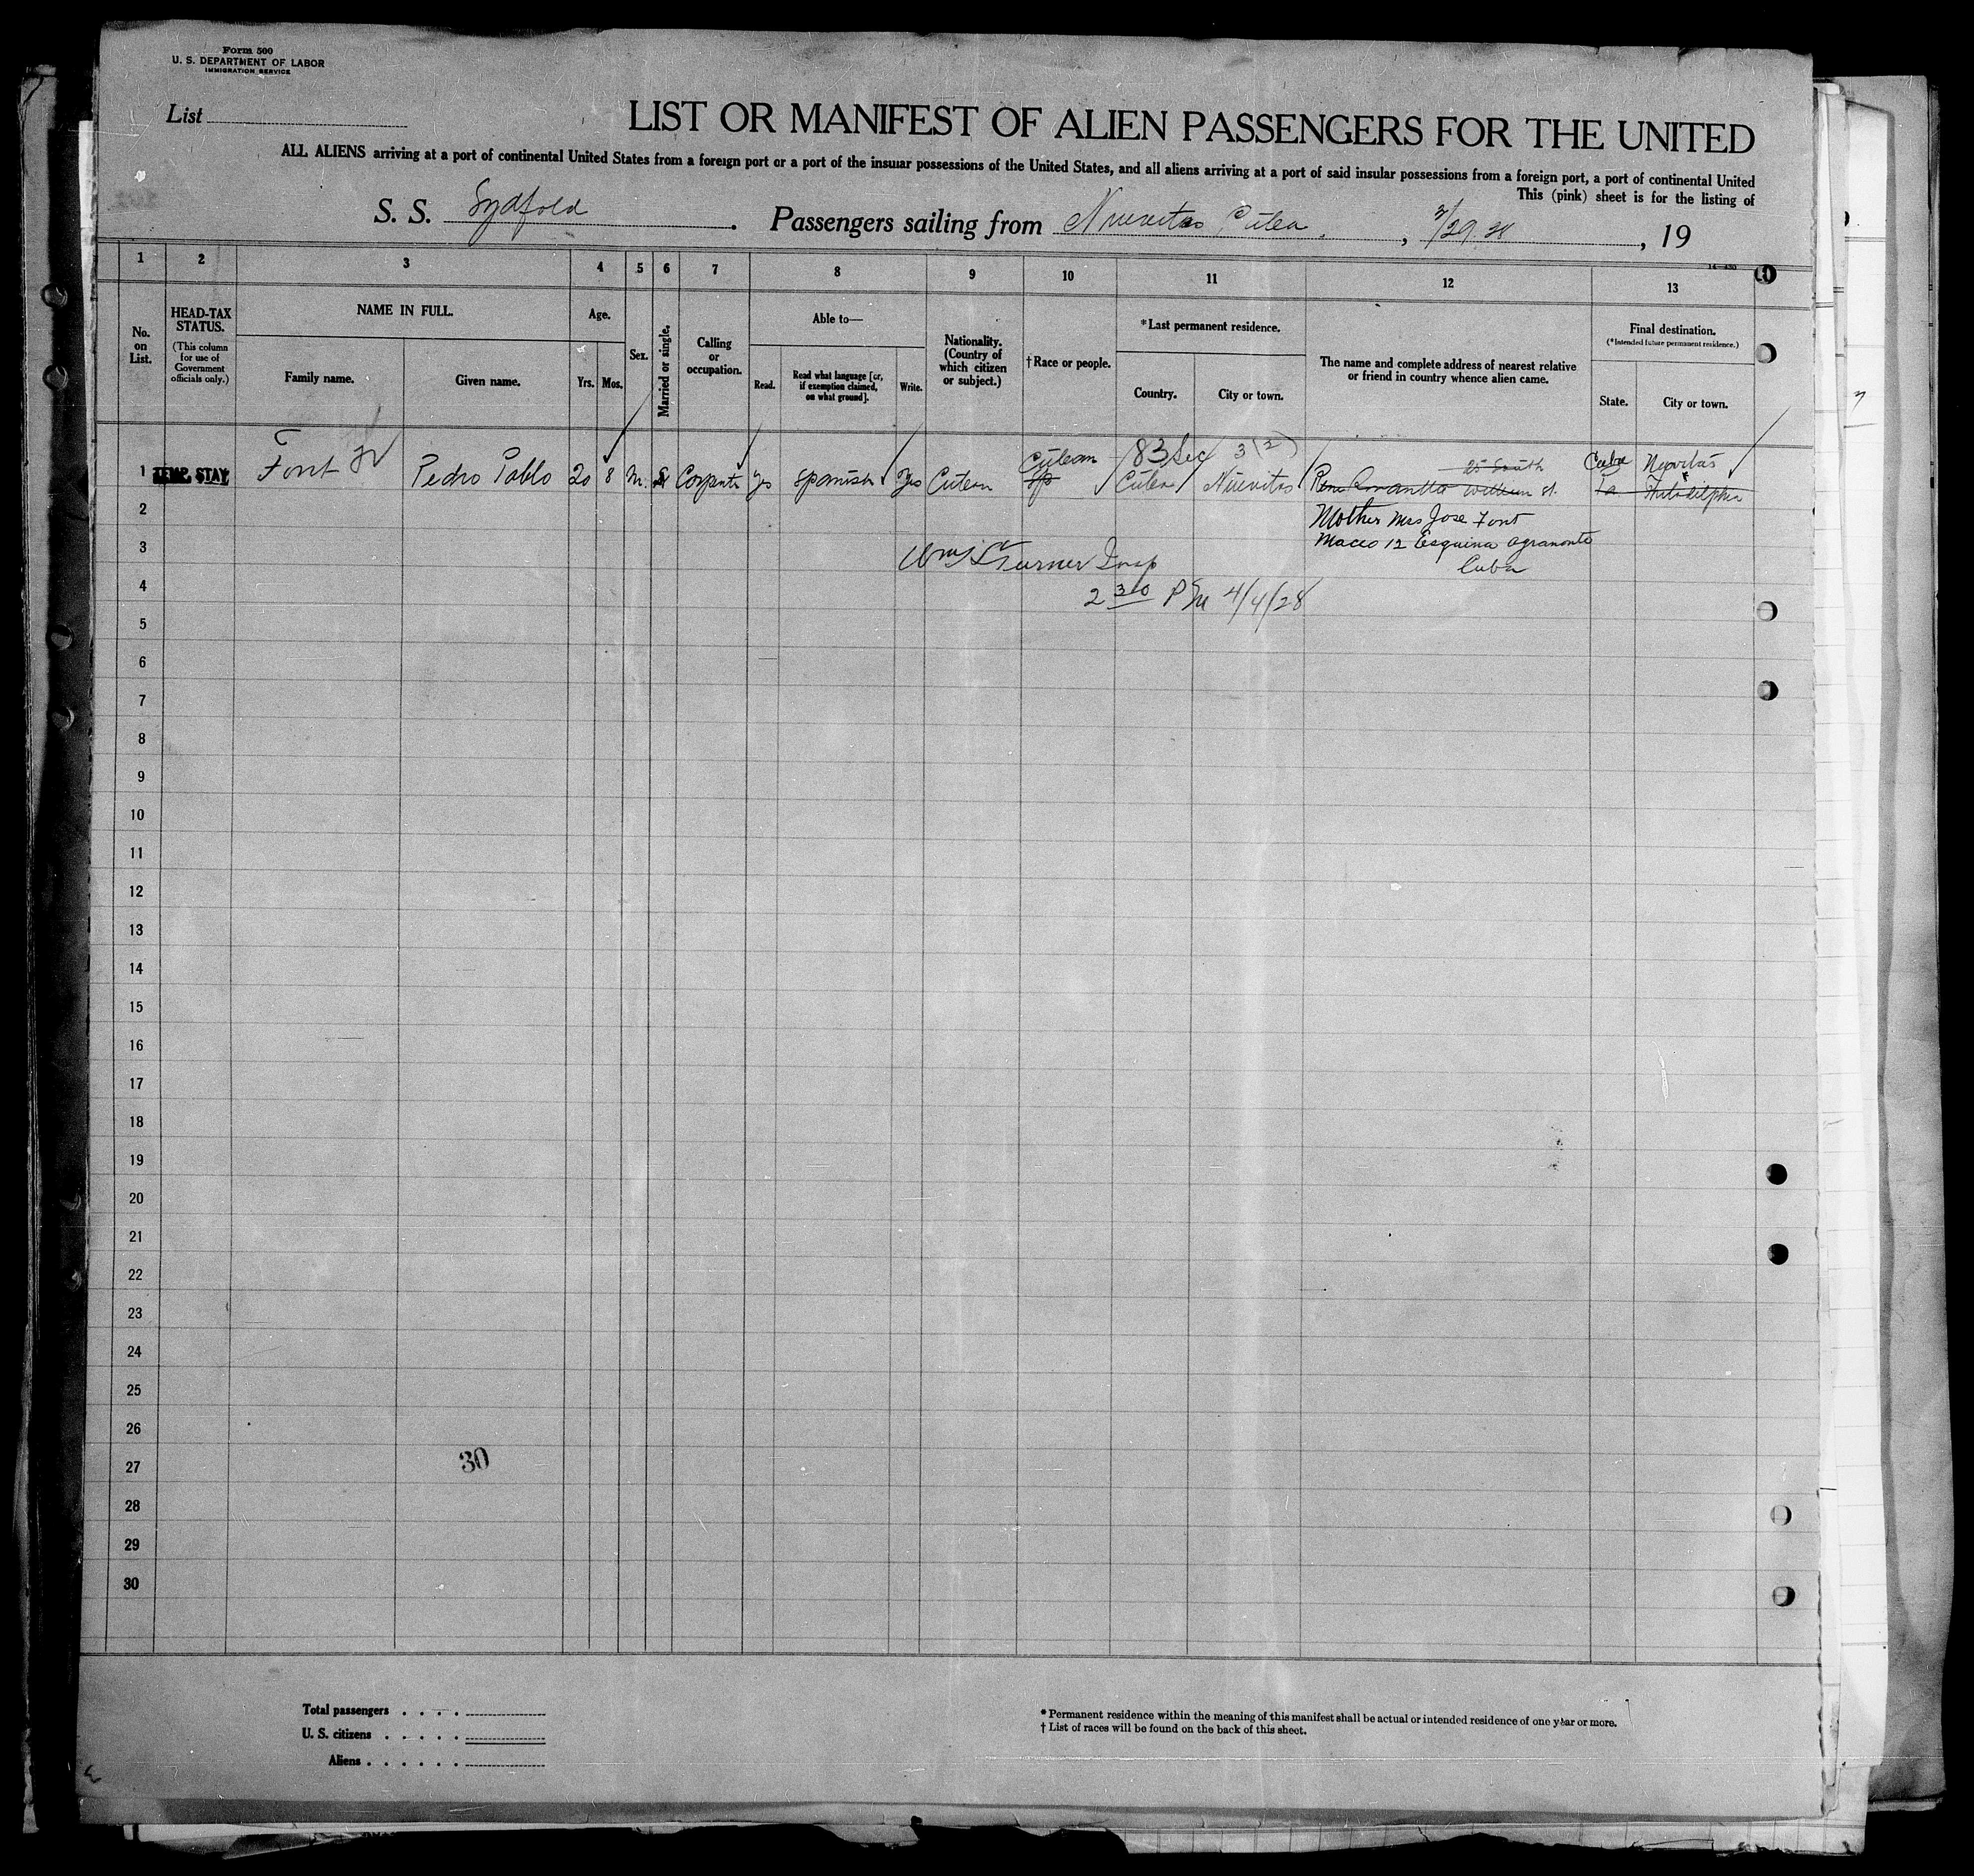 Form 500
U. S. DEPARTMENT OF LABOR
IMMIGRATION SERVICE
List
LIST OR MANIFEST OF ALIEN PASSENGERS FOR THE UNITED
ALL ALIENS arriving at a port of continental United States from a foreign port or a port of the insular possessions of the United States, and all aliens arriving at a port of said insular possessions from a foreign port, a port of continental United
This (pink) sheet is for the listing of
S. S. Sydfold. Passengers sailing from Nuevitas Cuba, , 3/29.28, 19
1 2 3 4 5 6 7 8 9 10 11 12 13
No. on List.
HEAD-TAX STATUS.
(This column for use of Government officials only.)
NAME IN FULL.
Family name.
Given name.
Age.
Yrs. Mos.
Sex.
Married or single.
Calling or occupation.
Able to—
Read.
Read what language [or, if exemption claimed, on what ground].
Write.
Nationality. (Country of which citizen or subject.)
†Race or people.
*Last permanent residence.
Country.
City or town.
The name and complete address of nearest relative or friend in country whence alien came.
Final destination.
(*Intended future permanent residence.)
State.
City or town.
Cuban 83 Sec 3(2) 25 South Cuba Nuevitas
1 TEMP. STAY Font Pedro Pablo 20 8 M. S Carpente Yes Spanish Yes Cuban Sp Cuba Nuevitas William St. Pa Philadelphia
2 Mother Mrs Jose Font
3 Maceo 12 Esquina Agramonte
Turner Insp Cuba
4 2 30 PM 4/4/28
5
6
7
8
9
10
11
12
13
14
15
16
17
18
19
20
21
22
23
24
25
26
27
30
28
29
30
Total passengers
U. S. citizens
Aliens
* Permanent residence within the meaning of this manifest shall be actual or intended residence of one year or more.
† List of races will be found on the back of this sheet.